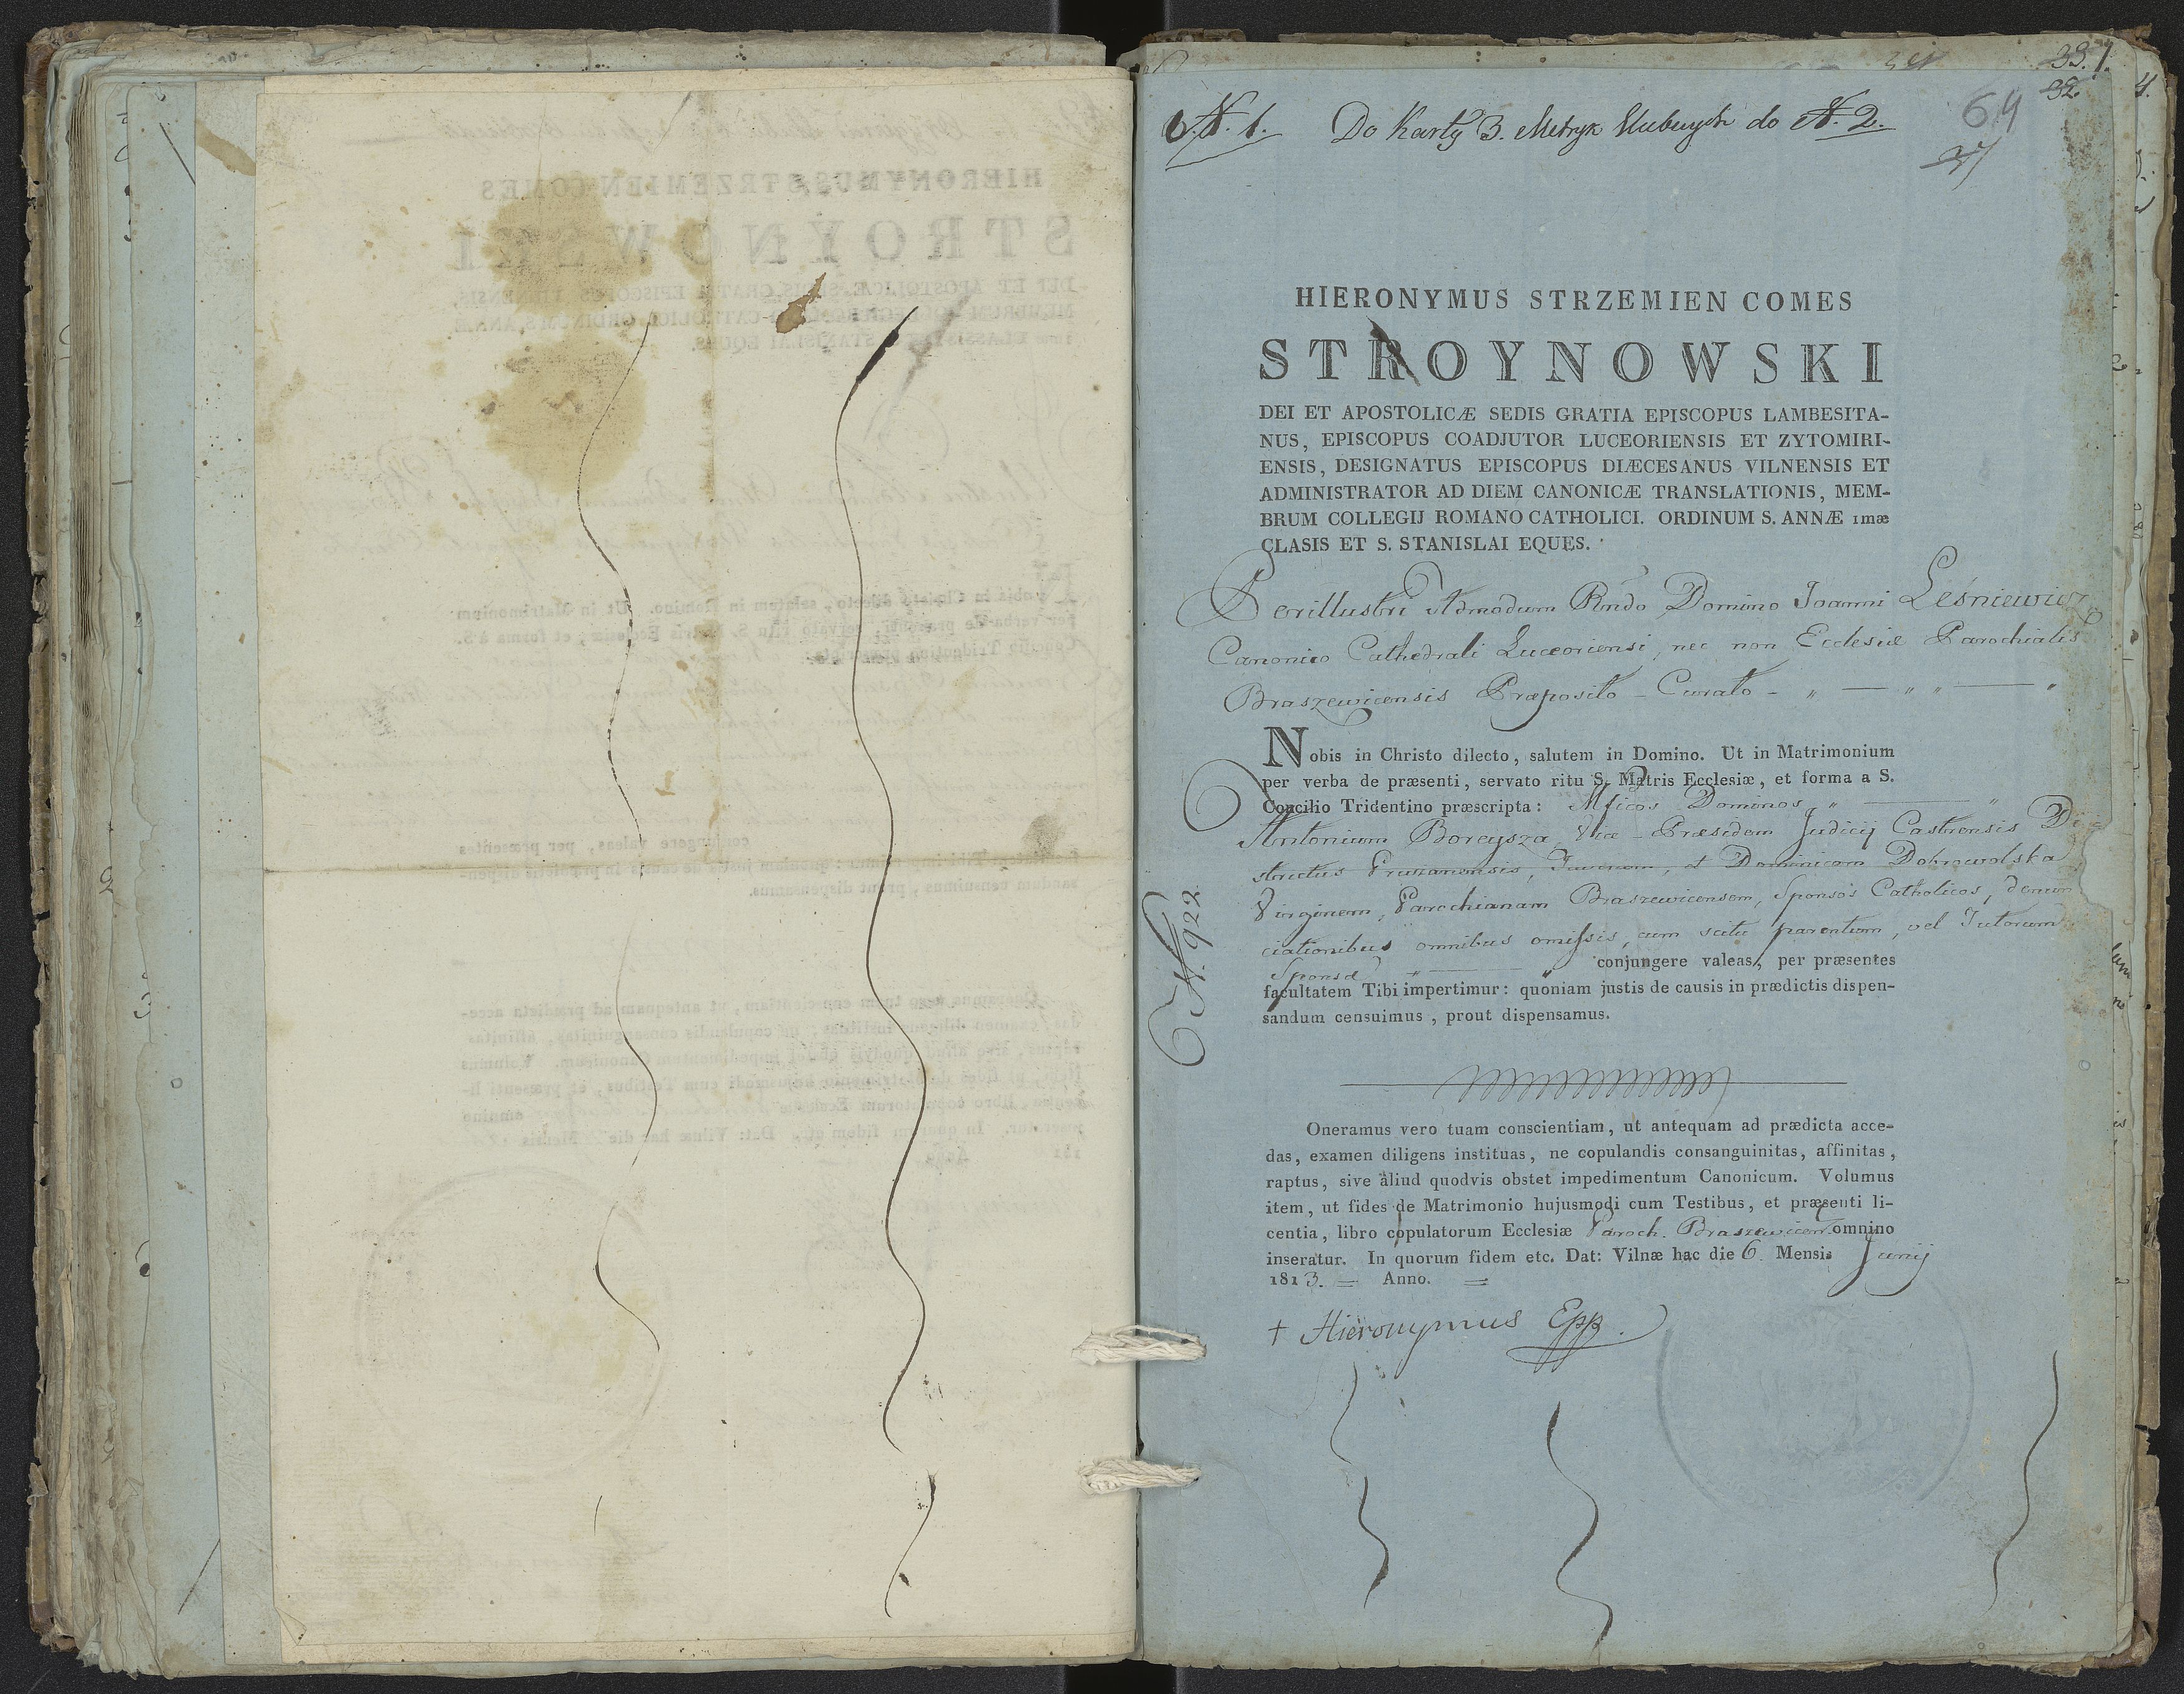 33. 1.
32.
64
37
N. 1. Do Karty 3. Metryk Slubnych do N. 2.
HIERONYMUS STRZEMIEN COMES
STROYNOWSKI
DEI ET APOSTOLICÆ SEDIS GRATIA EPISCOPUS LAMBESITA-
NUS, EPISCOPUS COADJUTOR LUCEORIENSIS ET ZYTOMIRI-
ENSIS, DESIGNATUS EPISCOPUS DIÆCESANUS VILNENSIS ET
ADMINISTRATOR AD DIEM CANONICÆ TRANSLATIONIS, MEM-
BRUM COLLEGIJ ROMANO CATHOLICI. ORDINUM S. ANNÆ 1mæ
CLASIS ET S. STANISLAI EQUES.
Perillustri Admodum Rndo Domino Joanni Leśniewicz
Canonico Cathedrali Luceoriensi, nec non Ecclesiæ Parochialis
Braszewicensis Præposito - Curato - " — " " — "
Nobis in Christo dilecto, salutem in Domino. Ut in Matrimonium
per verba de præsenti, servato ritu S. Matris Ecclesiæ, et forma a S.
Concilio Tridentino præscripta: Mficos Dominos " — "
Antonium Boreysza Vice-Præsidem Judicij Castrensis Di-
strictus Pruzanensis, Juvenem, et Dominicam Dobrowolska
Virginem, Parochianam Braszewicensem, Sponsos Catholicos, denun
ciationibus omnibus omissis, cum scitu parentum, vel Tutorum
Sponsæ " — " conjungere valeas, per præsentes
facultatem Tibi impertimur: quoniam justis de causis in prædictis dispen-
sandum censuimus, prout dispensamus.
N. 922.
Oneramus vero tuam conscientiam, ut antequam ad prædicta acce-
das, examen diligens instituas, ne copulandis consanguinitas, affinitas,
raptus, sive aliud quodvis obstet impedimentum Canonicum. Volumus
item, ut fides de Matrimonio hujusmodi cum Testibus, et præsenti li-
centia, libro copulatorum Ecclesiæ Paroch. Braszewicen. omnino
inseratur. In quorum fidem etc. Dat: Vilnæ hac die 6. Mensis Junij
1813. = Anno. =
† Hieronymus Epp.